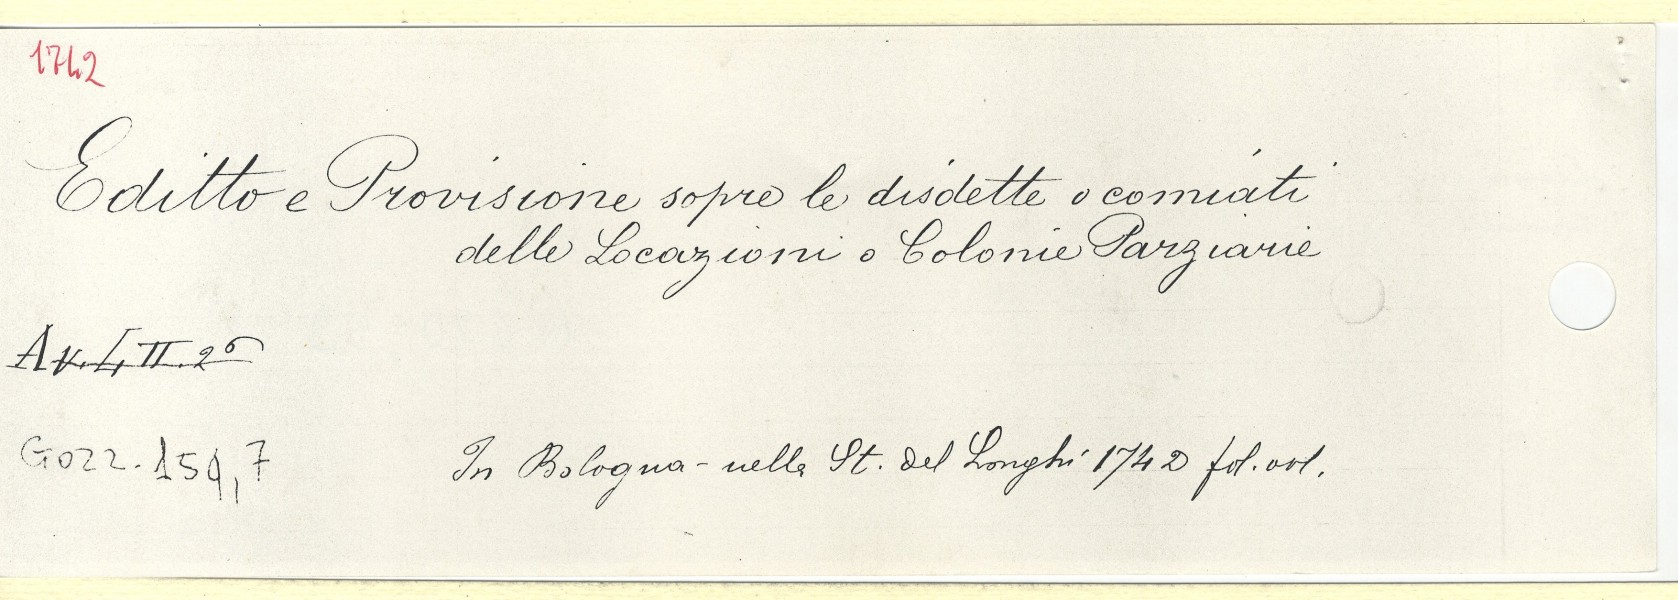 1742
Editto e Provisione sopre le disdette o comiati
delle Locazioni o Colonie Parziarie
AV. I, II. 26
Gozz. 151,7
In Bologna - nella St. del Longhi 1742 fol. vol.